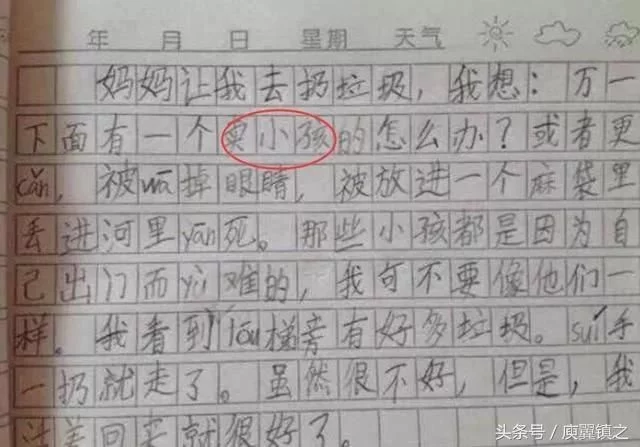 年 月 日 星期 天气
妈妈让我去扔垃圾，我想：万一
下面有一个卖小孩的怎么办？或者更
cǎn，被wā掉眼睛，被放进一个麻袋里
丢进河里yān死。那些小孩都是因为自
己出门而yù难的，我可不要像他们一
样。我看到lóu梯旁有好多垃圾。suí手
一扔就走了。虽然很不好，但是，我
活着回来就很好了。
头条号/庾翼镇之